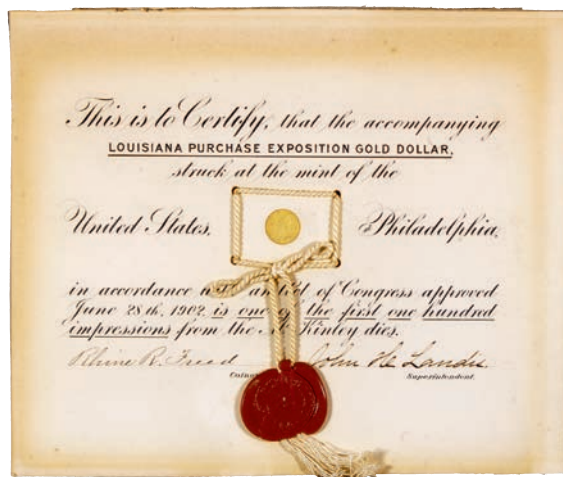 This is to Certify, that the accompanying
LOUISIANA PURCHASE EXPOSITION GOLD DOLLAR,
struck at the mint of the
United States, Philadelphia,
in accordance with an Act of Congress approved
June 28th, 1902, is one of the first one hundred
impressions from the McKinley dies.
Rhine R. Freed John H. Landis
Superintendent.